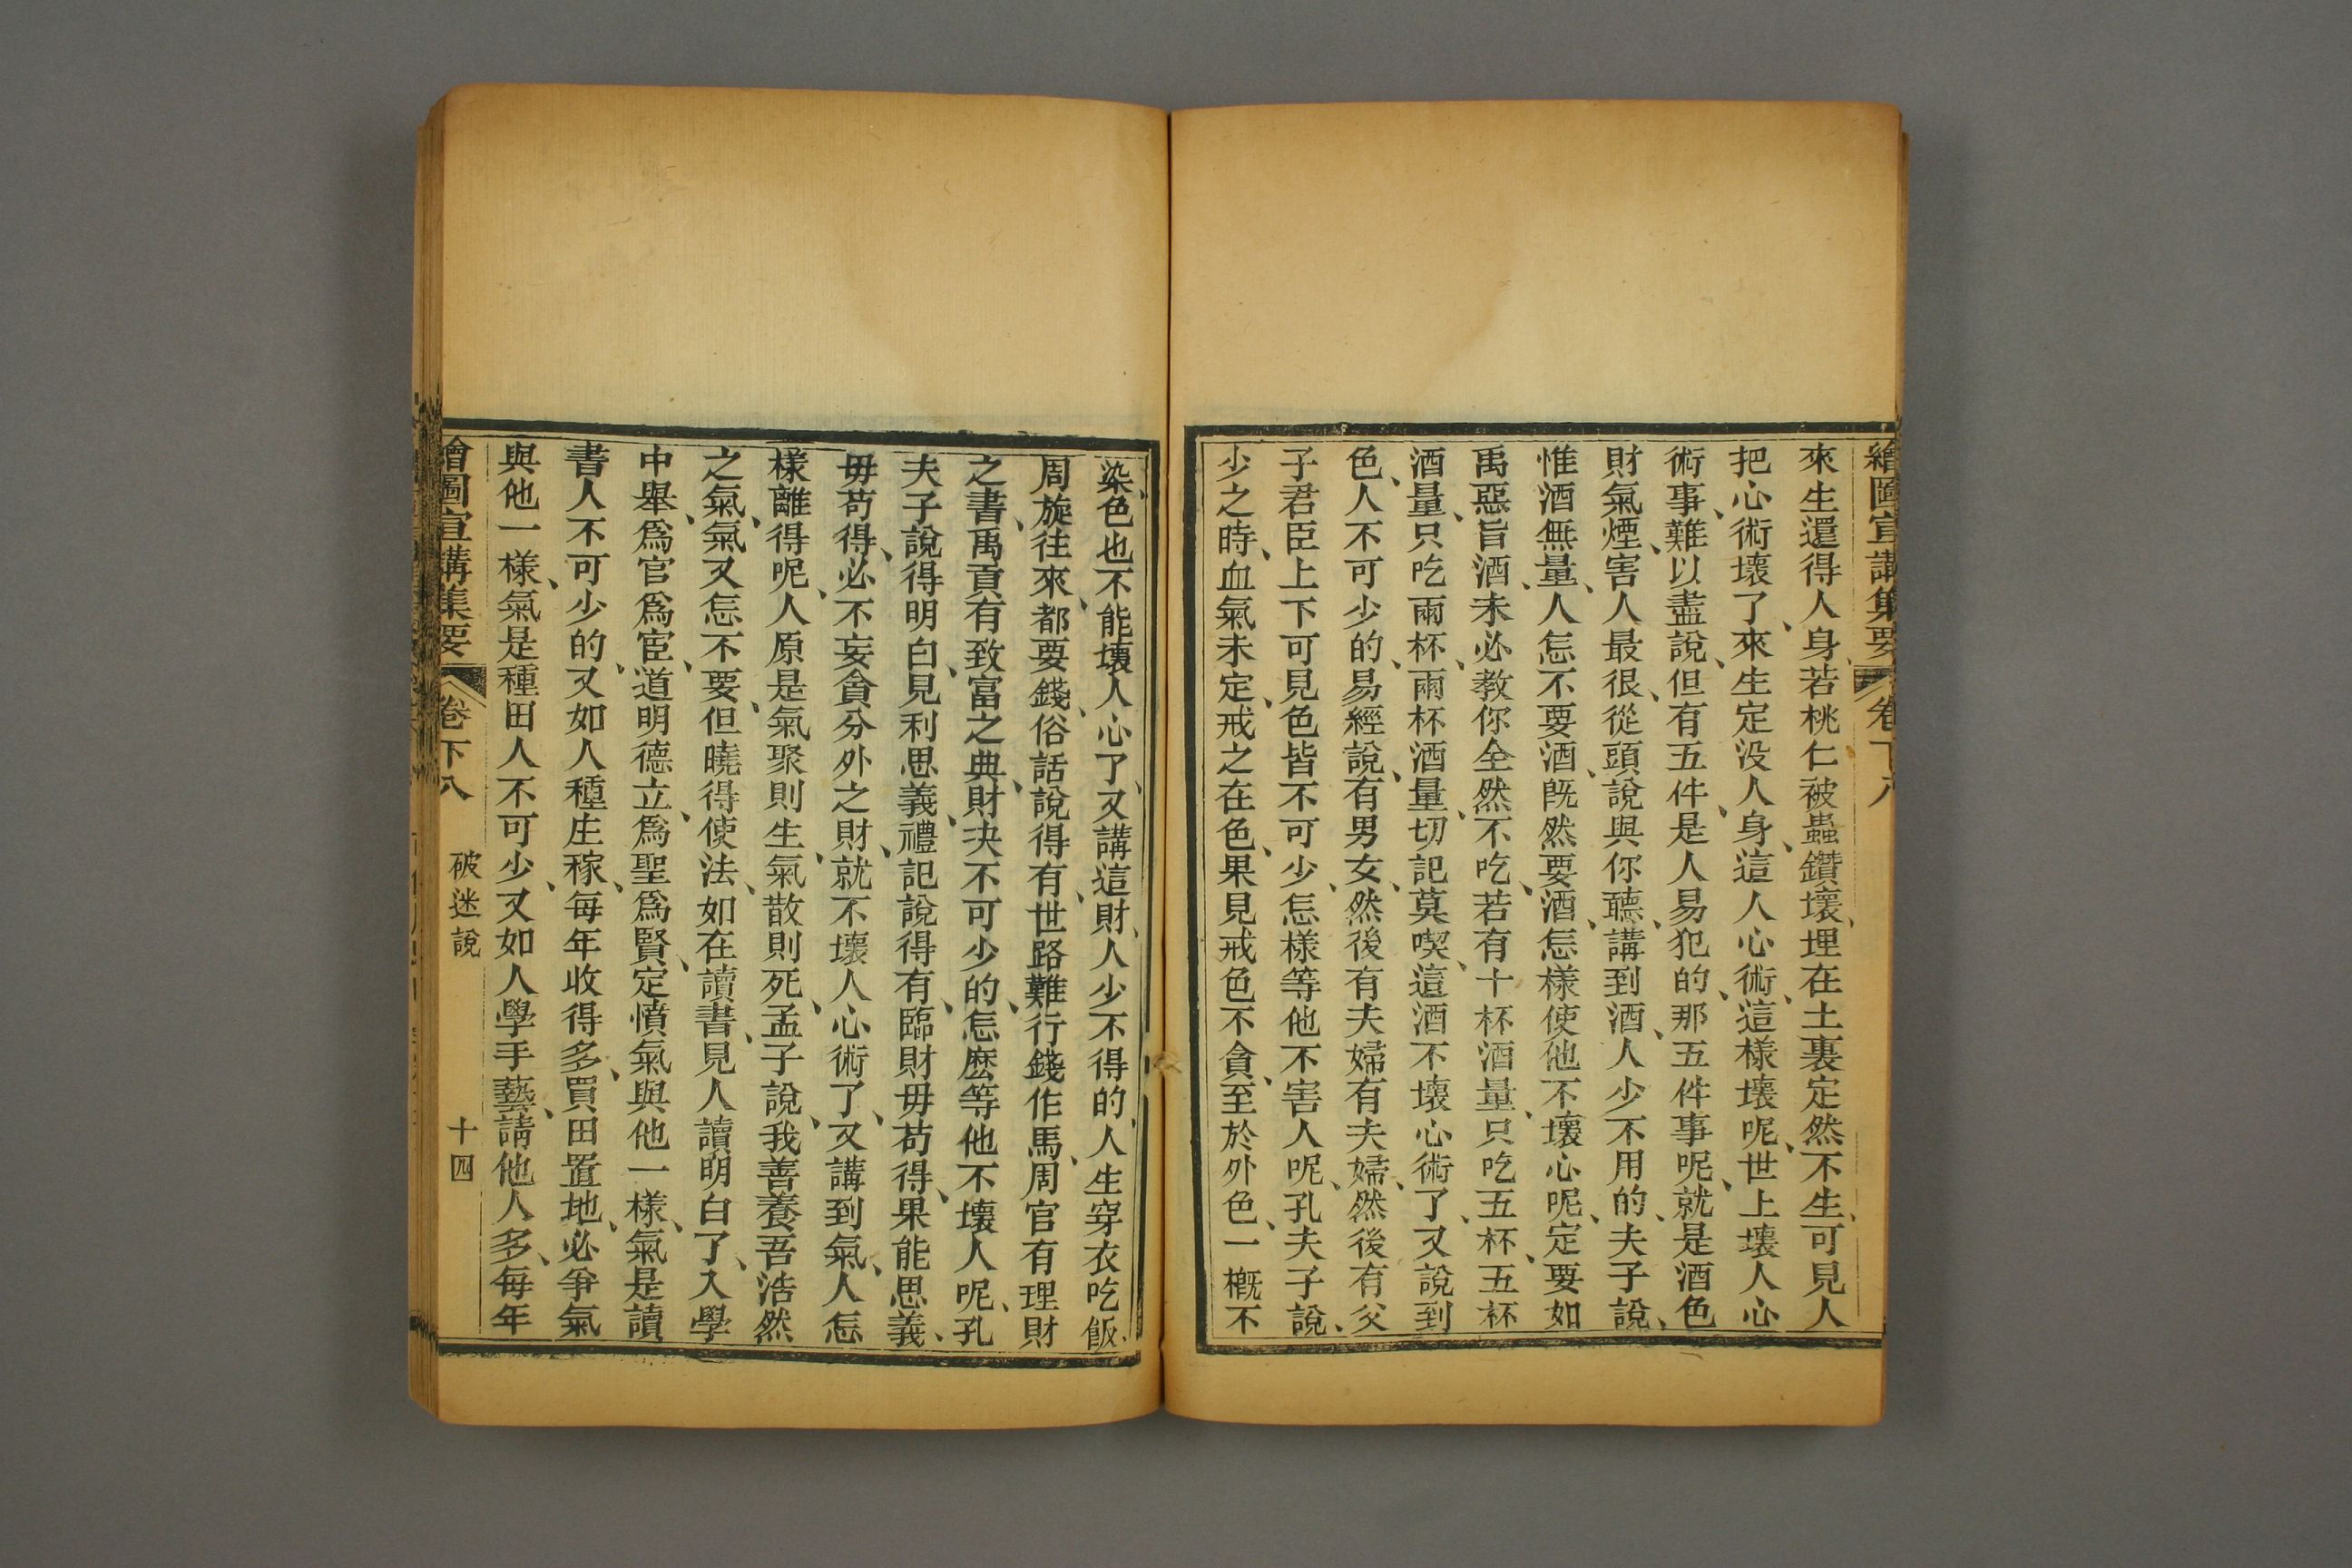 繪圖宣講集要 卷下八
來生還得人身、若桃仁被蟲鑽壞、埋在土裏定然不生、可見人
把心術壞了、來生定没人身、這人心術、這樣壞呢、世上壞人心
術事、難以盡說、但有五件、是人易犯的、那五件事呢、就是酒色
財氣煙、害人最很、從頭說與你聽、講到酒、人少不用的、夫子說、
惟酒無量、人怎不要酒、既然要酒、怎樣使他不壞心呢、定要如
禹惡旨酒、未必教你全然不吃、若有十杯酒量、只吃五杯、五杯
酒量、只吃兩杯、兩杯酒量、切記莫喫、這酒不壞心術了、又說到
色、人不可少的、易經說、有男女、然後有夫婦、有夫婦、然後有父
子君臣上下、可見色皆不可少、怎樣等他不害人呢、孔夫子說、
少之時、血氣未定、戒之在色、果見戒色不貪、至於外色、一概不
染、色也不能壞人心了、又講這財、人少不得的、人生穿衣吃飯、
周旋往來、都要錢、俗話說得有、世路難行錢作馬、周官有理財
之書、禹貢有致富之典、財决不可少的、怎麽等他不壞人呢、孔
夫子說得明白、見利思義、禮記說得有、臨財毋苟得、果能思義、
毋苟得、必不妄貪分外之財、就不壞人心術了、又講到氣、人怎
樣離得呢、人原是氣聚則生、氣散則死、孟子說、我善養吾浩然
之氣、氣又怎不要、但曉得使法、如在讀書、見人讀明白了、入學
中舉、爲官爲宦、道明德立、爲聖爲賢、定憤氣與他一樣、氣是讀
書人不可少的、又如人種庄稼、每年收得多、買田置地、必爭氣
與他一樣、氣是種田人不可少、又如人學手藝、請他人多、每年
繪圖宣講集要 卷下八 破迷說 十四